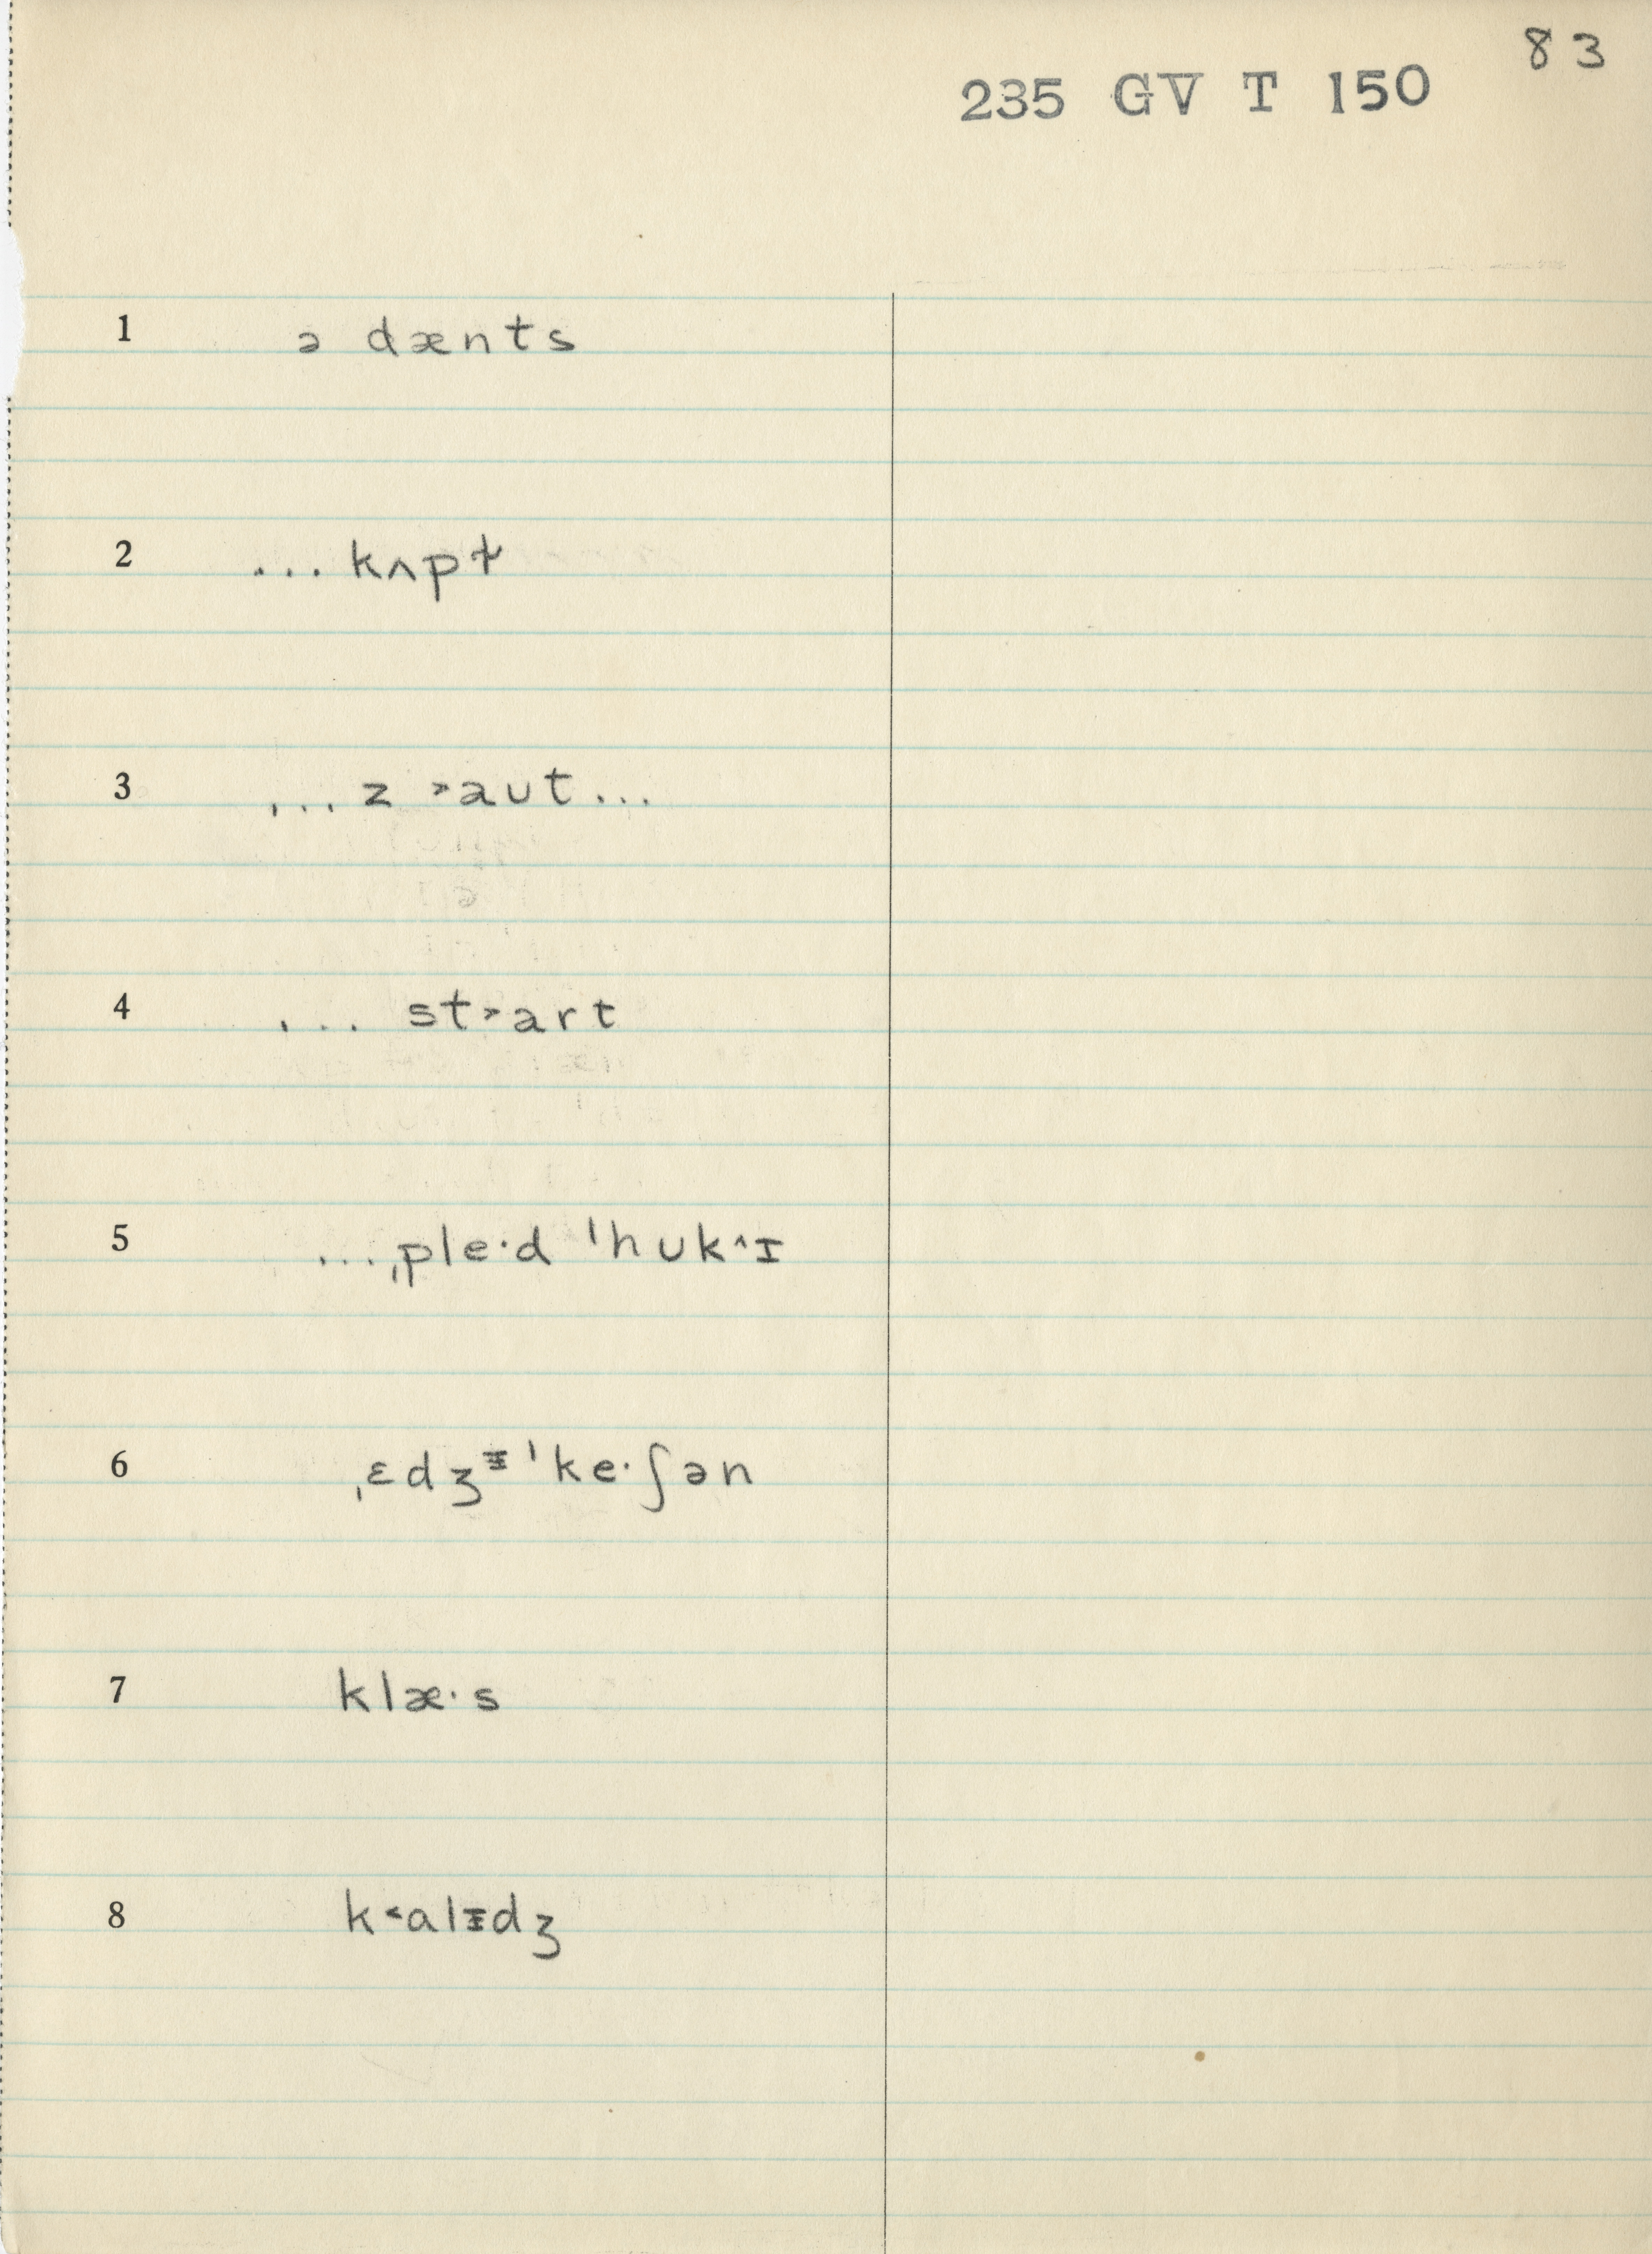 83
235 GV T 150
1 ə dænts
2 ... kʌpt̴
3 ... z ˃aʊt ...
4 ... st˃art
5 ... ˌple·d ˈhʊk^ɪ
6 ˌɛdʒᵻˈke·ʃən
7 klæ·s
8 k˂ɑlᵻdʒ